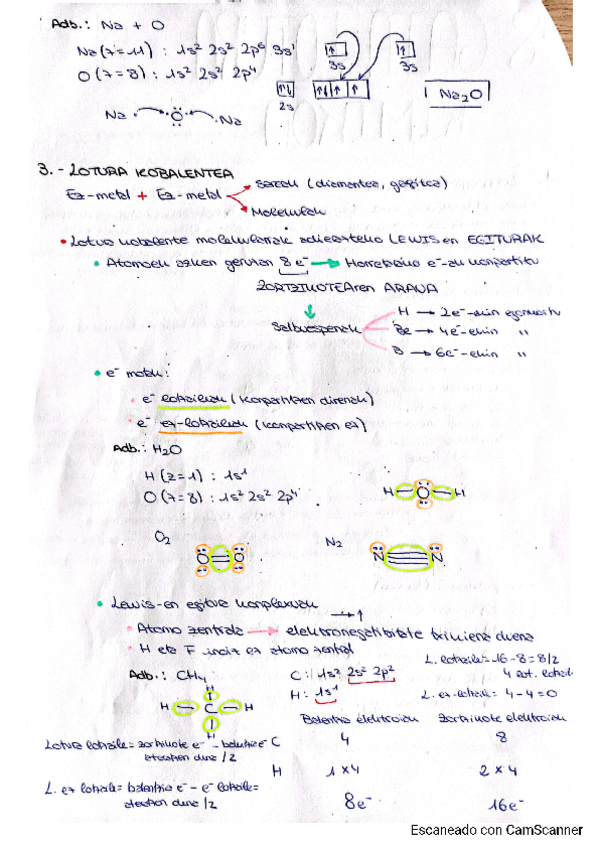 Adb.: Na + O
Na (z=11) : 1s² 2s² 2p⁶ 3s¹
3s 3s
O (z=8) : 1s² 2s² 2p⁴
2s
Na₂O
Na O Na
3.- LOTURA KOBALENTEA
Ez-metal + Ez-metal
Sareak (diamantea, grafitoa)
Molekulak
• Lotura kobalente molekularrak adierazteko LEWISen EGITURAK
• Atomoek azken geruzan 8 e⁻ → Horretarako e⁻-ak konpartitu
ZORTZIKOTEAren ARAUA
Salbuespenak
H → 2e⁻-ekin egonkortu
Be → 4e⁻-ekin "
B → 6e⁻-ekin "
• e⁻ motak:
• e⁻ lotzaileak (konpartitzen direnak)
• e⁻ ez-lotzaileak (konpartitzen ez)
Adb.: H₂O
H (z=1) : 1s¹
O (z=8) : 1s² 2s² 2p⁴
H — O — H
O₂
O = O
N₂
N ≡ N
• Lewis-en egitura konplexuak
• Atomo zentrala → elektronegatibitate txikiena duena
• H eta F inoiz ez atomo zentral
Adb.: CH₄
C: 1s² 2s² 2p²
H: 1s¹
L. lotzaile = 16-8 = 8/2
4 lot. lotzaile
L. ez-lotzaile = 4-4=0
H
H — C — H
H
Balentzia elektroiak
Zortzikote elektroiak
Lotura lotzaile = zortzikote e⁻ - balentzia e⁻ /2
C 4 8
H 1x4 2x4
L. ez lotzaile = balentzia e⁻ - e⁻ lotzaile = /2
8e⁻ 16e⁻
Escaneado con CamScanner